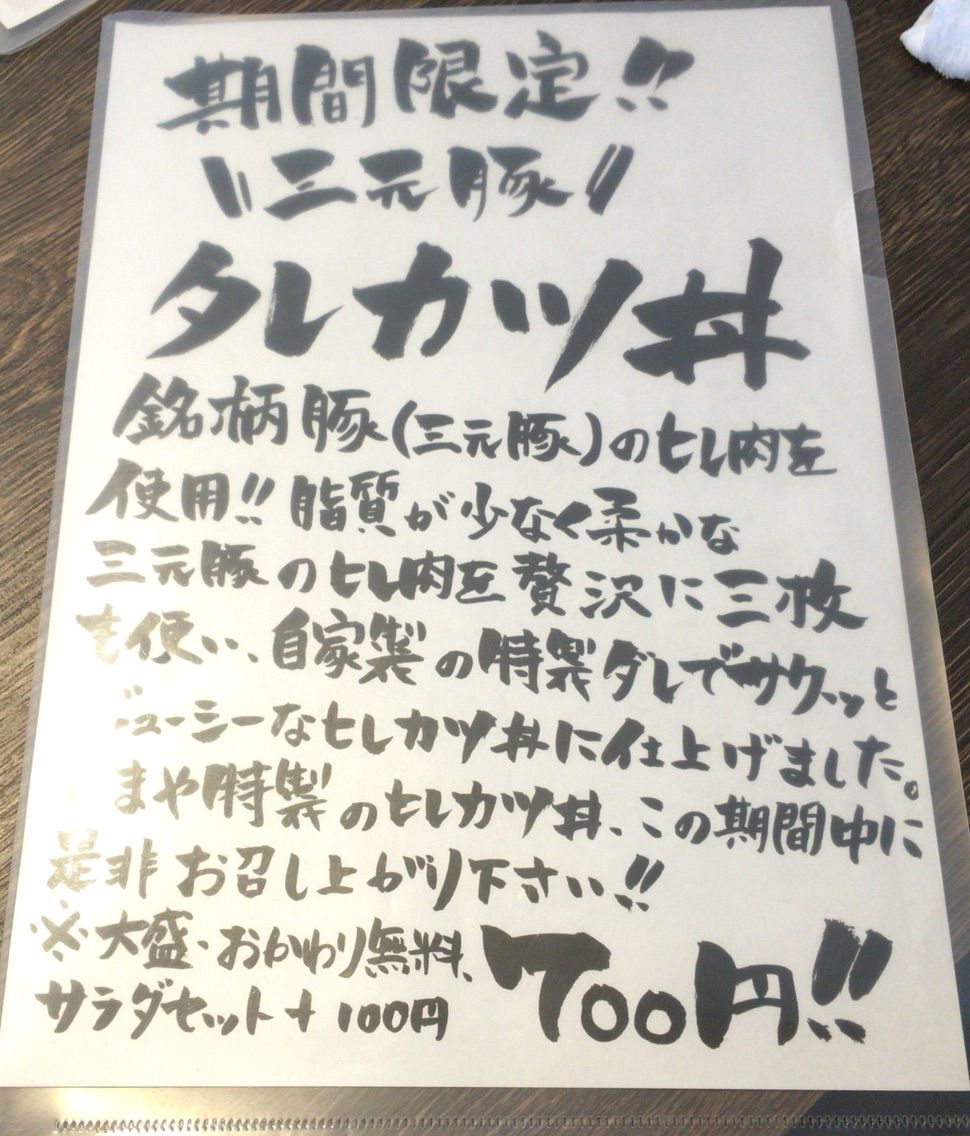 期間限定!!
\\三元豚//
タレカツ丼
銘柄豚(三元豚)のヒレ肉を
使用!!脂質が少なく柔かな
三元豚のヒレ肉を贅沢に三枚
も使い、自家製の特製ダレでサクッと
ジューシーなヒレカツ丼に仕上げました。
まや特製のヒレカツ丼、この期間中に
是非お召し上がり下さい!!
※大盛・おかわり無料、
サラダセット+100円
700円!!